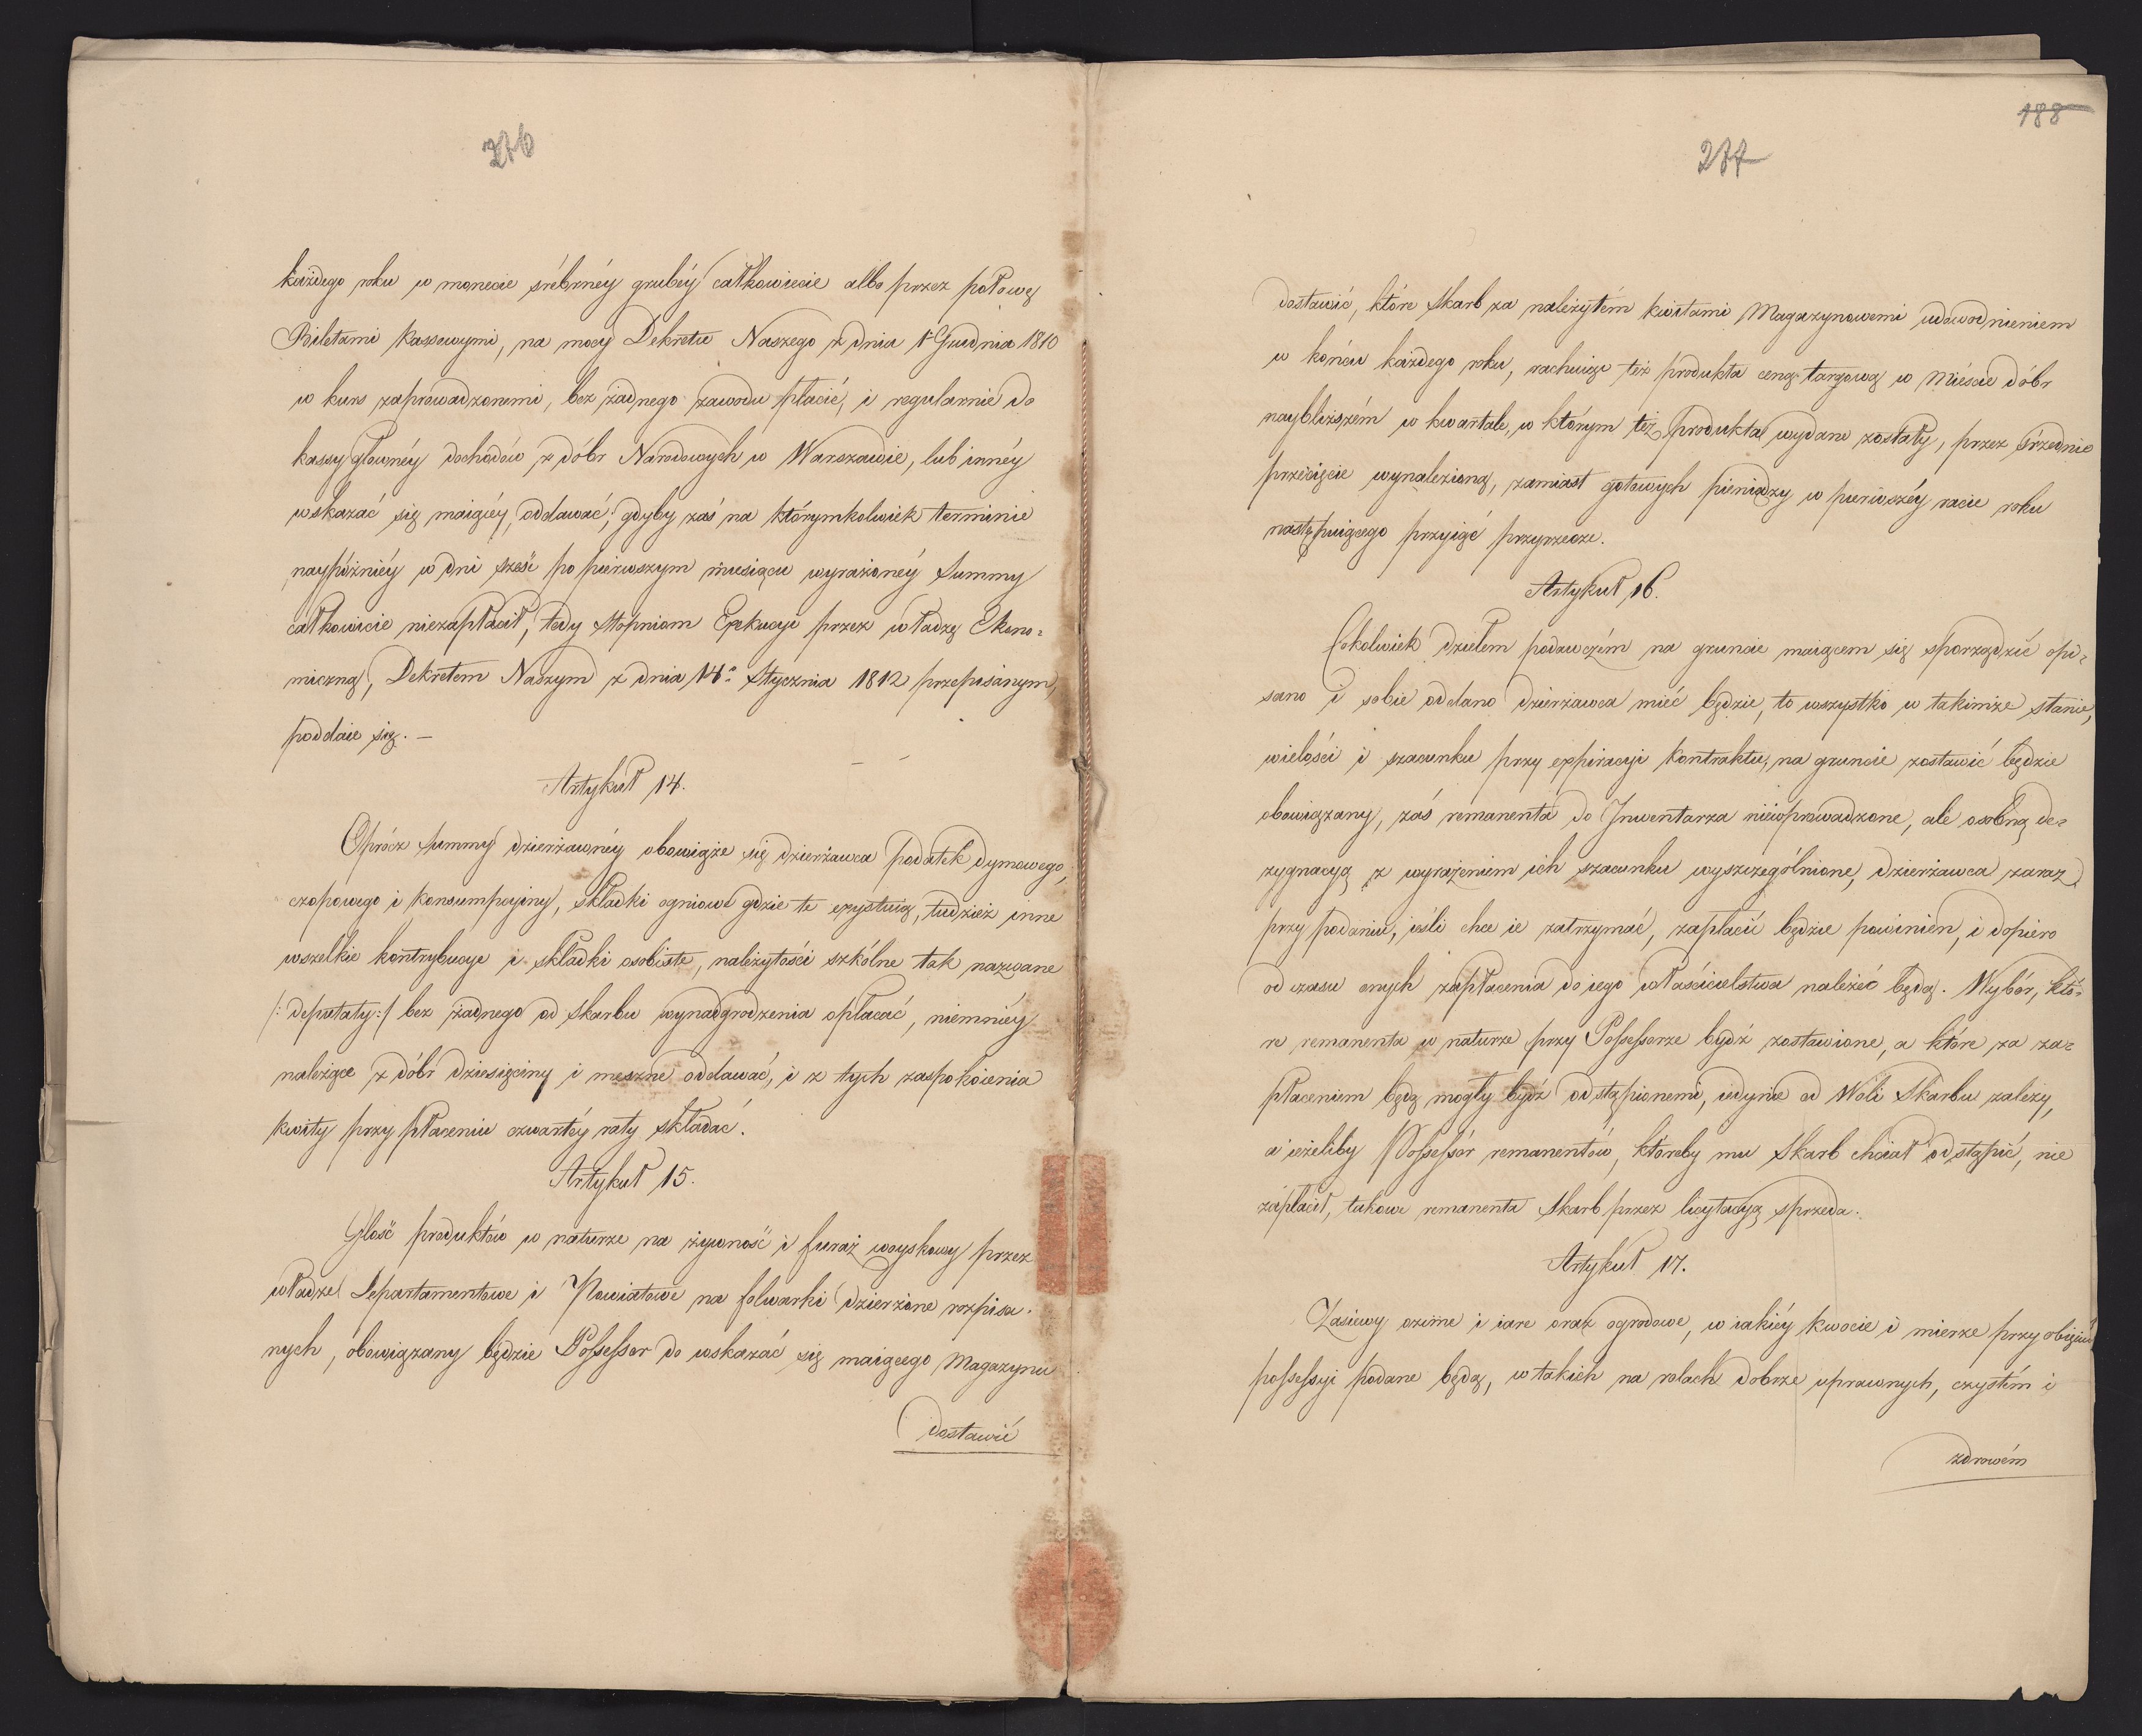 276
każdego roku w monecie śrebrnéy grubéy całkowicie albo przez połowę
Biletami Kassowymi, na mocy Dekretu Naszego z dnia 1º Grudnia 1810
w kurs zaprowadzonemi, bez żadnego zawodu płacić, i regularnie do
kassy głownéy dochodów z dóbr Narodowych w Warszawie, lub innéy
wskazać się maiącéy, oddawać; gdyby zaś na którymkolwiek terminie
naypóźniéy w dni sześć po pierwszym miesiącu wyrażonéy Summy
całkowicie niezapłacił, tedy stopniom Exekucyi przez władzę Ekono-
miczną, Dekretem Naszym z dnia 14º Stycznia 1812 przepisanym,
poddaie się. —
Artykuł 14.
Oprócz summy dzierżawnéy obowiąże się dzierżawca podatek dymowego,
czopowego i konsumpcyiny, składki ogniowe gdzie te exystuią, tudzież inne
wszelkie kontrybucye i składki osobiste, należytości szkólne tak nazwane
/: deputaty :/ bez żadnego od skarbu wynadgrodzenia opłacać, niemniéy
należące z dóbr dziesięciny i meszne oddawać, i z tych zaspokoienia
kwity przy płaceniu czwartéy raty składać.
Artykuł 15.
Ilość produktów w naturze na żywność i furaż woyskowy przez
władze Departamentowe i Powiatowe na folwarki dzierżone rozpisa-
nych, obowiązany będzie Possessor do wskazać się maiącego Magazynu
dostawić
188
277
dostawić, które Skarb za należytém kwitami Magazynowemi udowodnieniem
w końcu każdego roku, rachuiąc też produkta ceną targową w Mieście dóbr
naybliższém w kwartale, w którym też produkta wydane zostały, przez średnie
przecięcie wynalezioną, zamiast gotowych pieniędzy w pierwszéy racie roku
następuiącego przyiąć przyrzecze.
Artykuł 16.
Cokolwiek dziełem podawczém na gruncie maiącem się sporządzić opi-
sano i sobie oddano dzierżawca mieć będzie, to wszystko w takimże stanie,
wielości i szacunku przy expiracyi kontraktu, na gruncie zostawić będzie
obowiązany, zaś remanenta do Inwentarza niewprowadzone, ale osobną de-
zygnacyą z wyrażeniem ich szacunku wyszczególnione, dzierżawca zaraz
przy podaniu, ieśli chce ie zatrzymać, zapłacić będzie powinien, i dopiero
od czasu onych zapłacenia do iego właścicielstwa należeć będą. Wybór, któ-
re remanenta w naturze przy Possessorze bydź zostawione, a które za za-
płaceniem będą mogły bydź odstąpionemi, iedynie od Woli Skarbu zależy,
a ieżeliby Possessor remanentów, któreby mu Skarb chciał odstąpić, nie
zapłacił, takowe remanenta Skarb przez licytacyą sprzeda.
Artykuł 17.
Zasiewy ozime i iare oraz ogrodowe, w iakiéy kwocie i mierze przy obięciu
possessyi podane będą, w takich na rolach dobrze uprawnych, czystém i
zdrowém